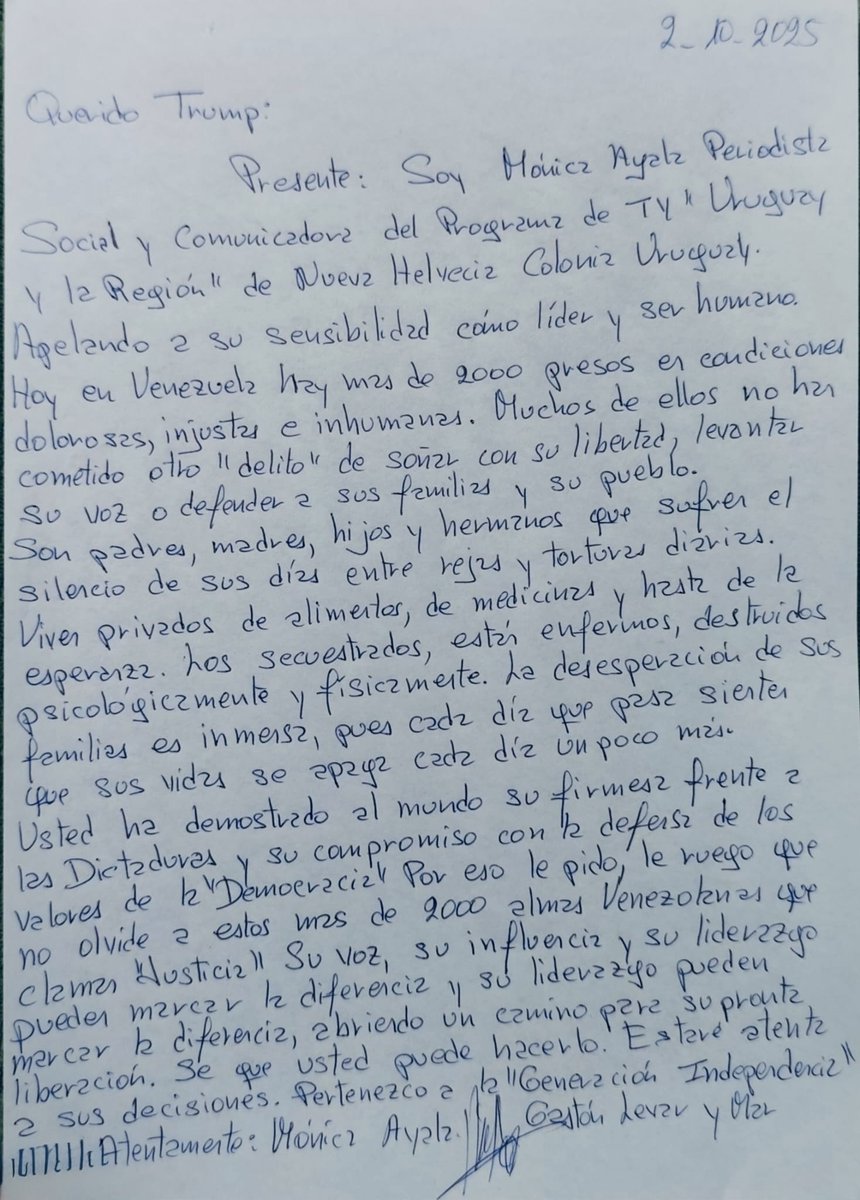 2-10-2025
Querido Trump:
Presente: Soy Mónica Ayala Periodista
Social y Comunicadora del Programa de TV "Uruguay
y la Región" de Nueva Helvecia Colonia Uruguay.
Apelando a su sensibilidad cómo líder y ser humano.
Hoy en Venezuela hay mas de 2000 presos en condiciones
dolorosas, injustas e inhumanas. Muchos de ellos no han
cometido otro "delito" de soñar con su libertad, levantar
su voz o defender a sus familias y su pueblo.
Son padres, madres, hijos y hermanos que sufren el
silencio de sus días entre rejas y torturas diarias.
Viven privados de alimentos, de medicinas y hasta de la
esperanza. Los secuestrados, están enfermos, destruidos
psicológicamente y físicamente. La desesperación de sus
familias es inmensa, pues cada día que pasa sienten
que sus vidas se apaga cada día un poco más.
Usted ha demostrado al mundo su firmesa frente a
las Dictaduras y su compromiso con la defensa de los
valores de la "Democracia" Por eso le pido, le ruego que
no olvide a estos mas de 2000 almas Venezolanas que
claman "Justicia" Su voz, su influencia y su liderazgo
pueden marcar la diferencia y su liderazgo pueden
marcar la diferencia, abriendo un camino para su pronta
liberación. Se que usted puede hacerlo. Estaré atenta
a sus decisiones. Pertenezco a la "Generación Independencia"
Atentamente: Mónica Ayala. Gastón Levar y Mar